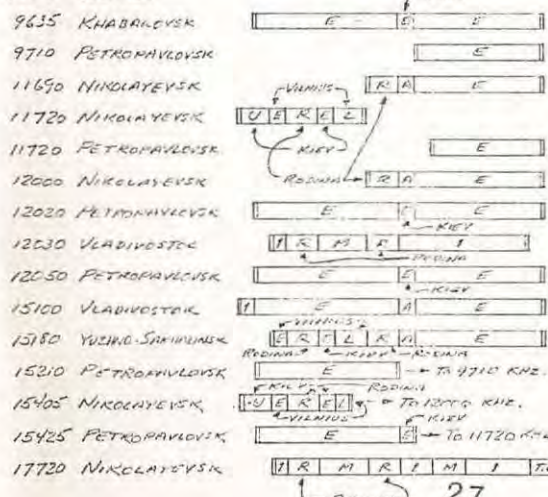 E E E
9635 KHABAROVSK
9710 PETROPAVLOVSK E
11690 NIKOLAYEVSK R A E
VILNIUS
11720 NIKOLAYEVSK U E R E L
KIEV
11720 PETROPAVLOVSK E
RODINA
12000 NIKOLAYEVSK R A E
12020 PETROPAVLOVSK E E E
KIEV
12030 VLADIVOSTOK 1 R M R 1
RODINA
12050 PETROPAVLOVSK E E E
KIEV
15100 VLADIVOSTOK 1 E A E
VILNIUS
15180 YUZHNO-SAKHALINSK E R E L R A E
RODINA KIEV RODINA
15210 PETROPAVLOVSK E TO 9710 KHZ.
KIEV RODINA
15405 NIKOLAYEVSK U E R E L TO 12000 KHZ.
VILNIUS
KIEV
15425 PETROPAVLOVSK E E TO 11720 KHZ
17720 NIKOLAYEVSK 1 R M R 1 M 1
27